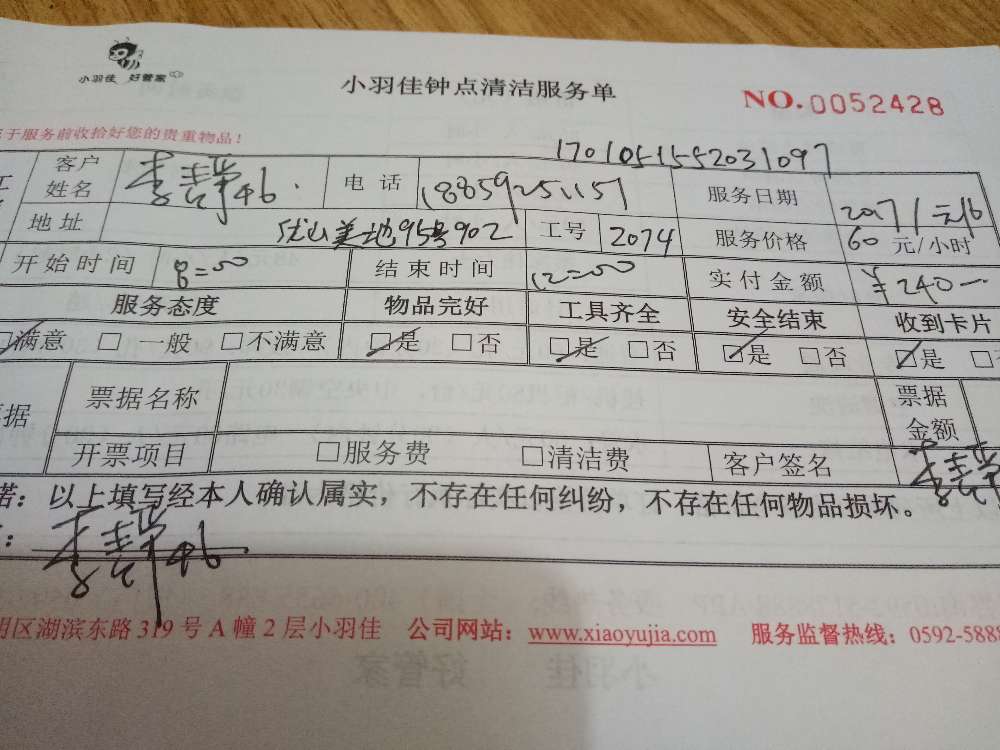 小羽佳 好管家
小羽佳钟点清洁服务单
NO.0052428
于服务前收拾好您的贵重物品!
1701051552031097
客户姓名 电话 18859251151 服务日期 2017/元/6
地址 优山美地95号902 工号 2074 服务价格 60元/小时
开始时间 8=00 结束时间 12=00 实付金额 ¥240—
服务态度 物品完好 工具齐全 安全结束 收到卡片
☑满意 □一般 □不满意 ☑是 □否 ☑是 □否 ☑是 □否 ☑是 □
据 票据名称 票据金额
开票项目 □服务费 □清洁费 客户签名
诺:以上填写经本人确认属实,不存在任何纠纷,不存在任何物品损坏。
:
明区湖滨东路319号A幢2层小羽佳 公司网站:www.xiaoyujia.com 服务监督热线:0592-5888